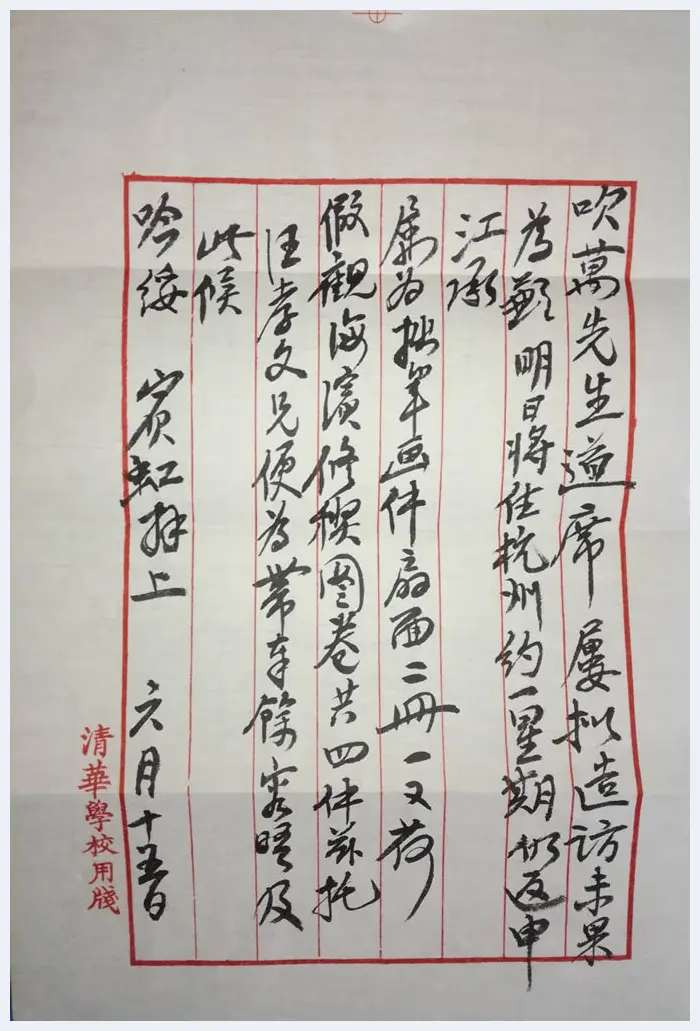 吹萬先生道席屢拟造訪未果
為歉明日將往杭州約一星期仍返申
江承
屬为拙筆画件扇面二冊一又荷
假觀海濱修禊图卷共四件茲托
汪孝文兄便為帶奉餘容晤及
此候
吟綏 賓虹拜上 六月十五日
清華學校用牋